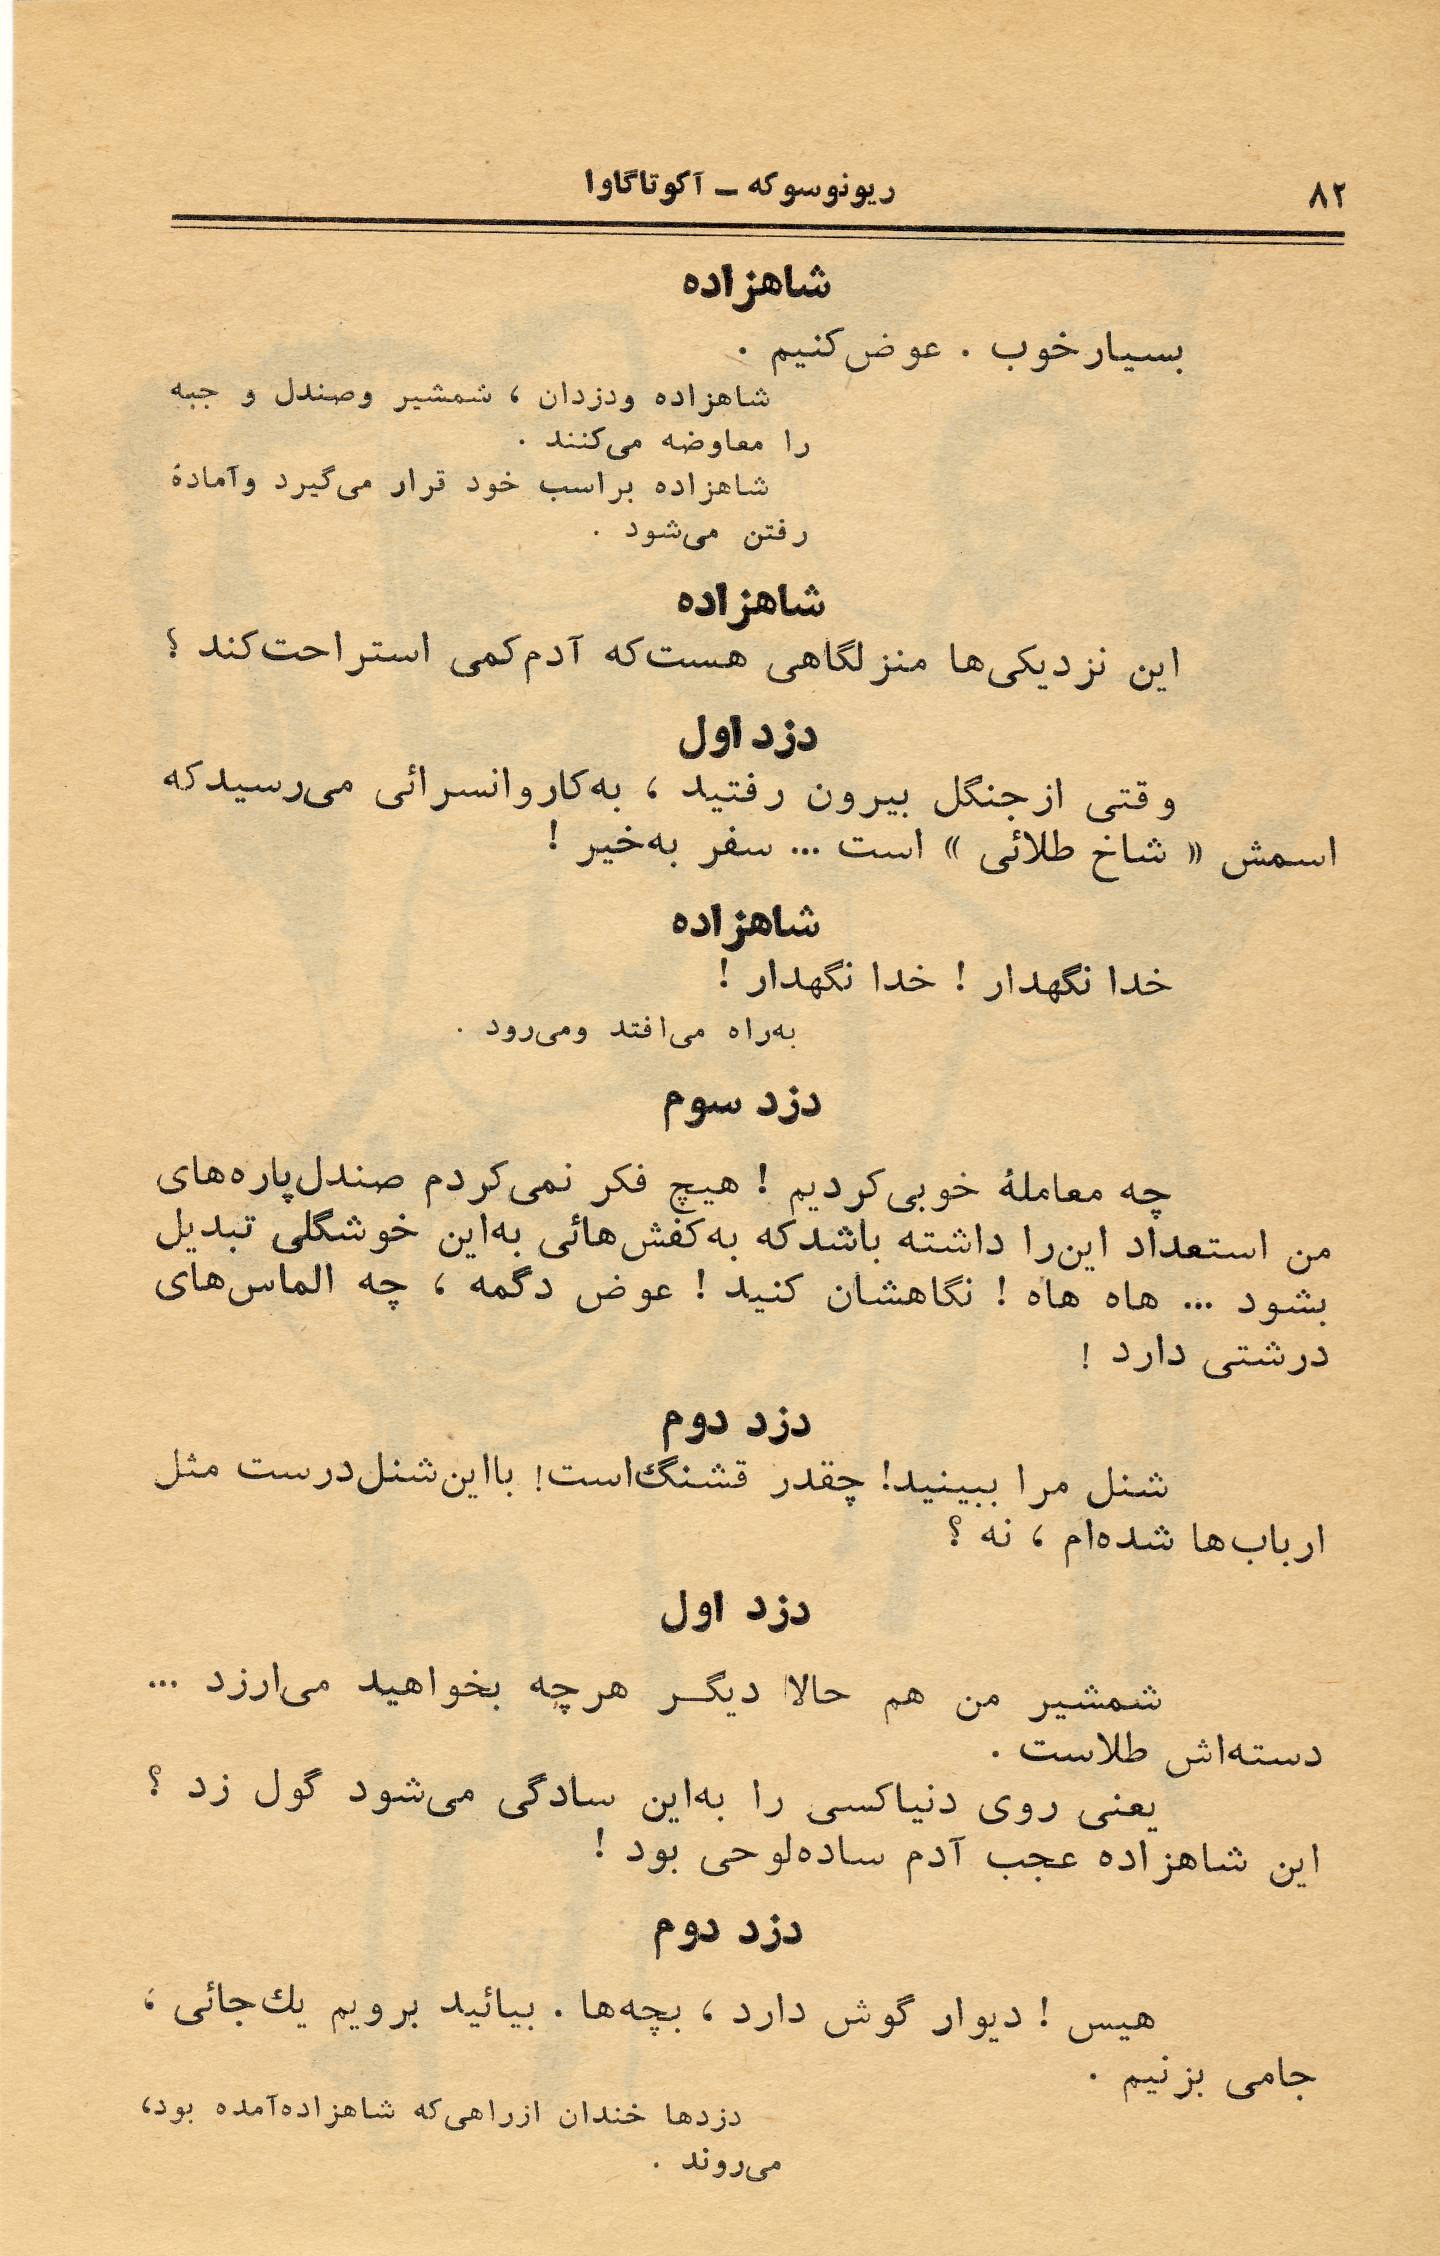 ۸۲
ریونوسوکه ــ آکوتاگاوا
شاهزاده
بسیارخوب . عوض‌کنیم .
شاهزاده ودزدان ، شمشیر وصندل و جبه
را معاوضه می‌کنند .
شاهزاده براسب خود قرار می‌گیرد وآمادهٔ
رفتن می‌شود .
شاهزاده
این نزدیکی‌ها منزلگاهی هست‌که آدم‌کمی استراحت‌کند ؟
دزد اول
وقتی ازجنگل بیرون رفتید ، به‌کاروانسرائی می‌رسیدکه
اسمش « شاخ طلائی » است ... سفر به‌خیر !
شاهزاده
خدا نگهدار ! خدا نگهدار !
به‌راه می‌افتد ومی‌رود .
دزد سوم
چه معاملهٔ خوبی‌کردیم ! هیچ فکر نمی‌کردم صندل‌پاره‌های
من استعداد این‌را داشته باشدکه به‌کفش‌هائی به‌این خوشگلی تبدیل
بشود ... هاه هاه ! نگاهشان کنید ! عوض دگمه ، چه الماس‌های
درشتی دارد !
دزد دوم
شنل مرا ببینید! چقدر قشنگ‌است! بااین‌شنل‌درست مثل
ارباب‌ها شده‌ام ، نه ؟
دزد اول
شمشیر من هم حالا دیگــر هرچه بخواهید می‌ارزد ...
دسته‌اش طلاست .
یعنی روی دنیاکسی را به‌این سادگی می‌شود گول زد ؟
این شاهزاده عجب آدم ساده‌لوحی بود !
دزد دوم
هیس ! دیوار گوش دارد ، بچه‌ها . بیائید برویم یك‌جائی ،
جامی بزنیم .
دزدها خندان ازراهی‌که شاهزاده‌آمده بود،
می‌روند .